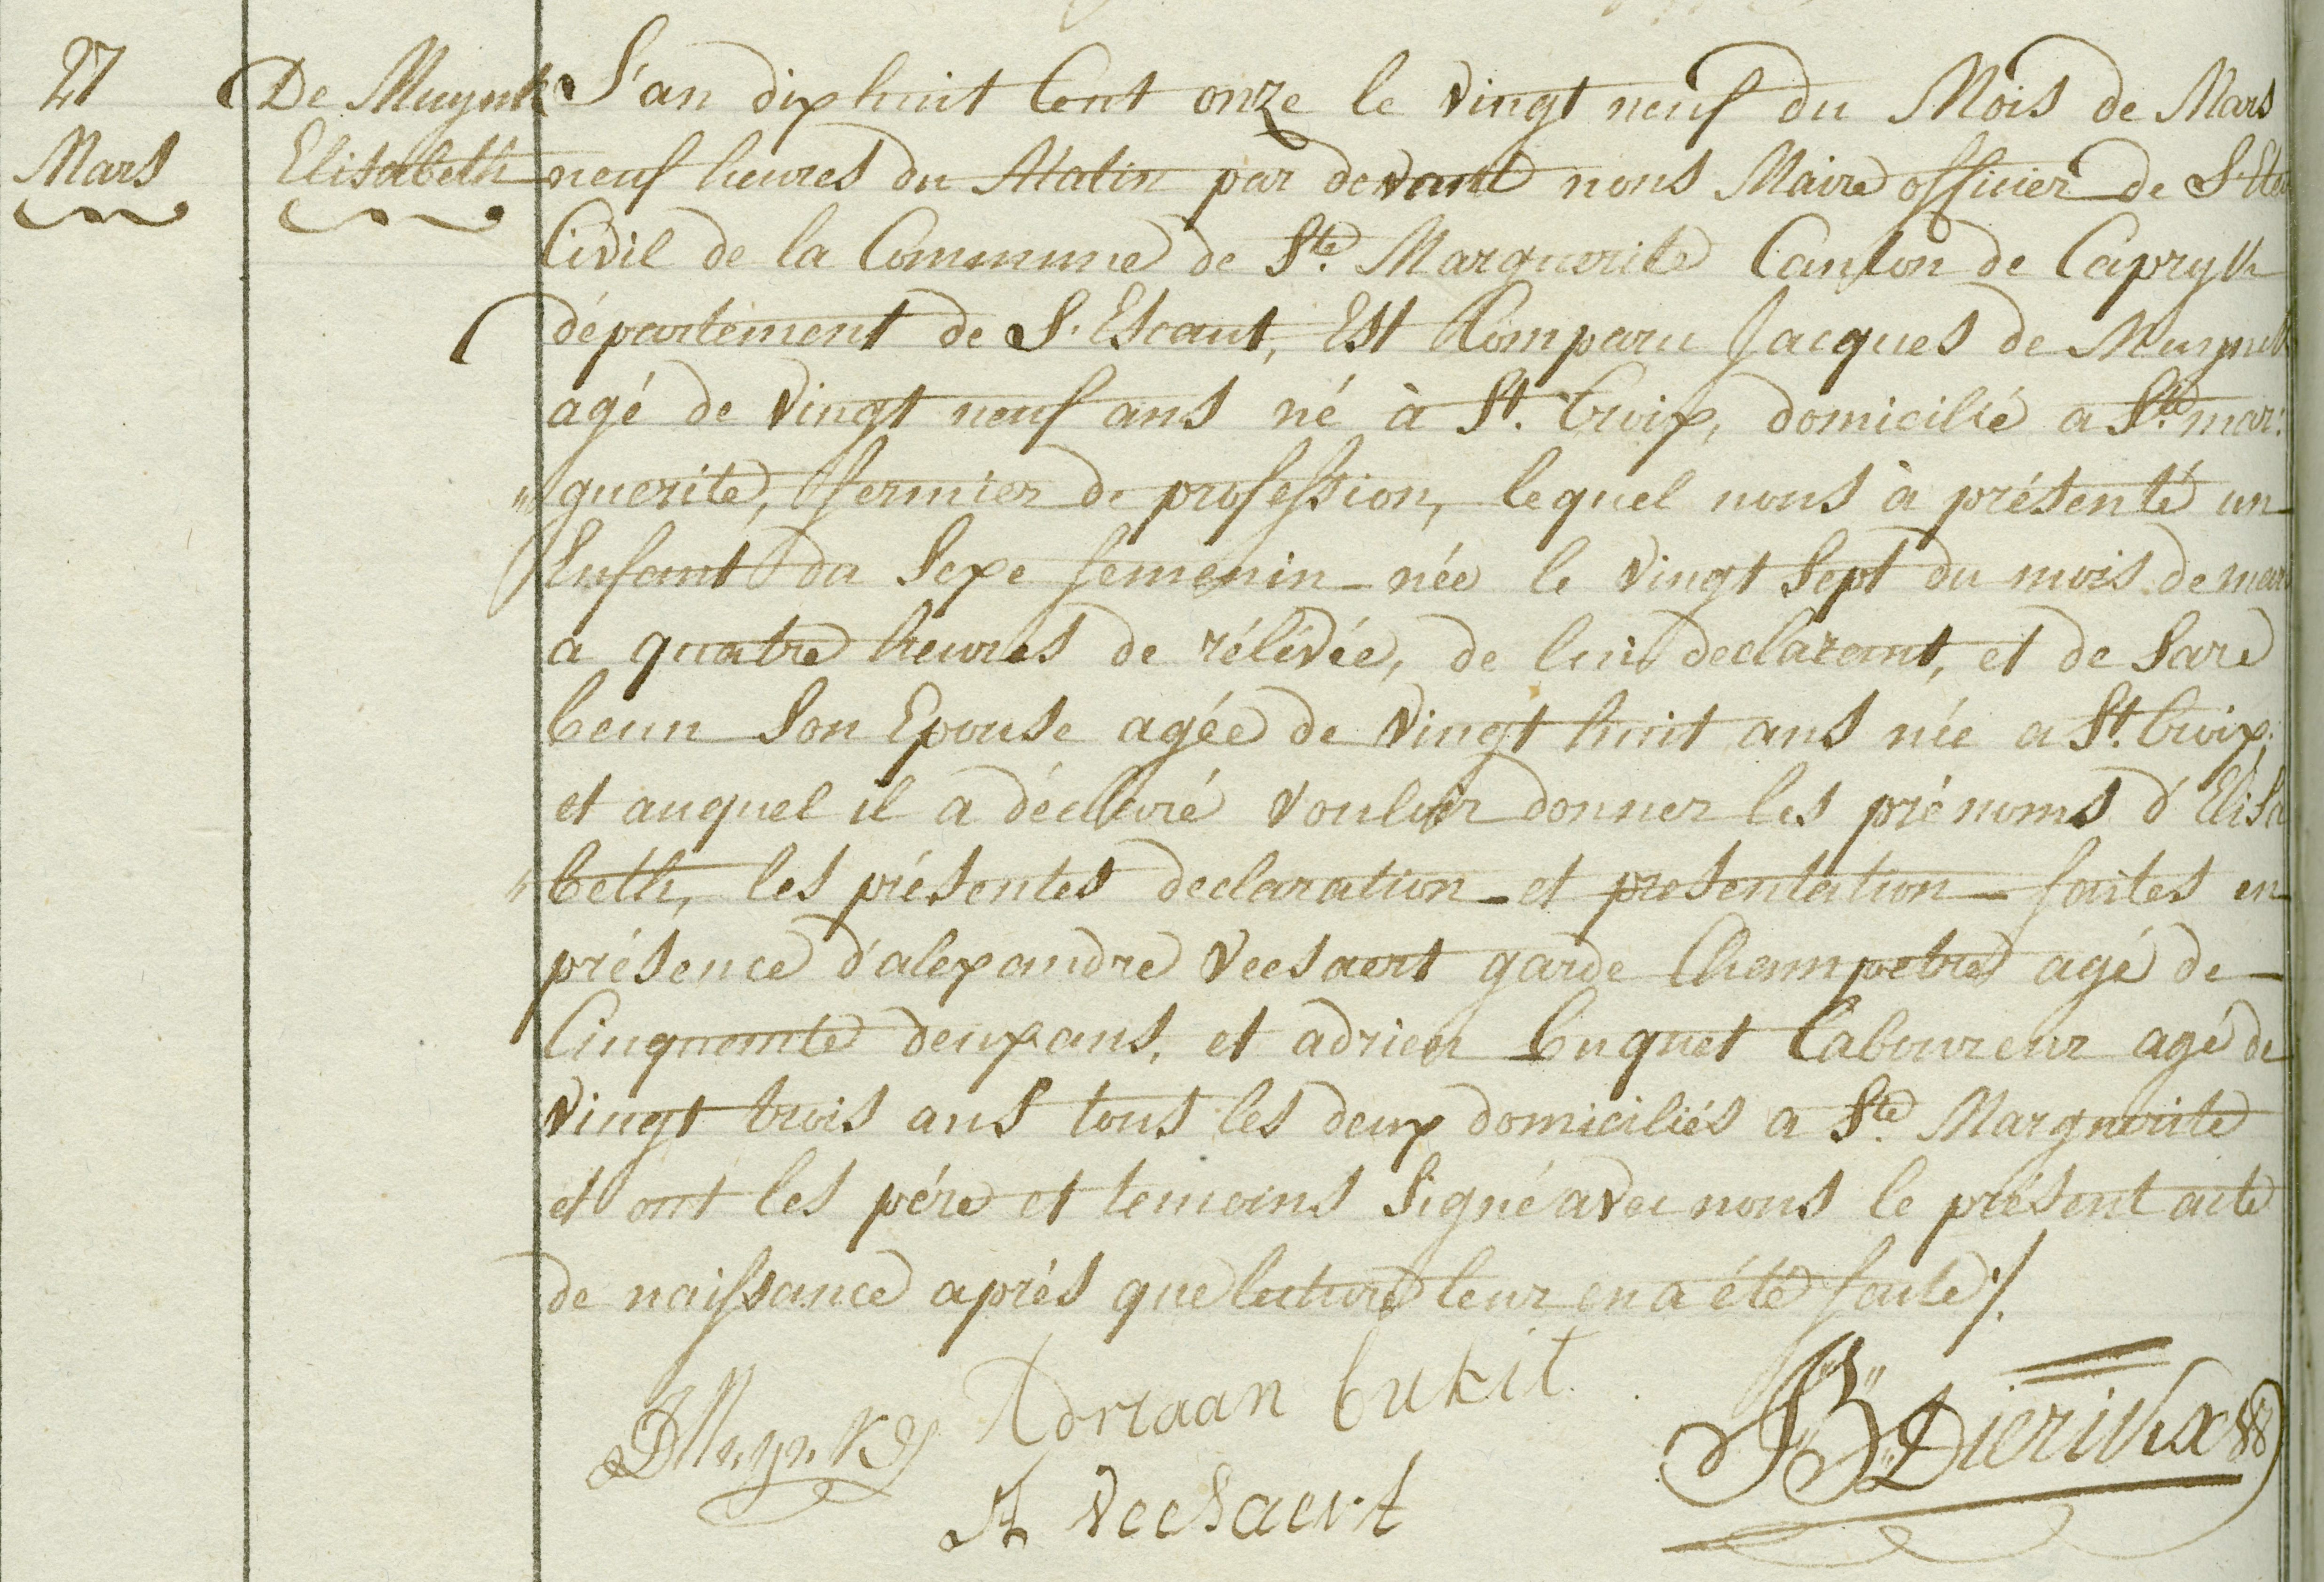 27 De Muynk L'an dix huit Cent onze le vingt neuf du Mois de Mars
Mars Elisabeth neuf heures du Matin par devant nous Maire officier de L'Etat
Civil de la Commune de Ste. Marguerite Canton de Capryk
département de L'Escaut, Est Comparu Jacques de Muynck
agé de vingt neuf ans né à St. Croix, domicilié a Ste. mar:
"guerite, fermier de profession, lequel nous à présenté un
Enfant du Sexe femenin - née le vingt Sept du mois de mars
a quatre heures de rélévée, de lui declarant, et de Sare
Ceun Son Epouse agée de vingt huit ans née a St. Croix.
et auquel il a déclaré vouloir donner les prénoms d'Elisa
"beth, les présentes declaration - et presentation - faites en
présence d'alexandre Veesaert garde Champetre agé de -
Cinquante deux ans, et adrien Cuquet Laboureur agé de
vingt trois ans tous les deux domiciliés a Ste. Marguerite
et ont les pére et temoins Signé avec nous le présent acte
de naissance aprés que lecture leur en a été faite ./.
DMuynk Adriaan Cukit
A Veesaert